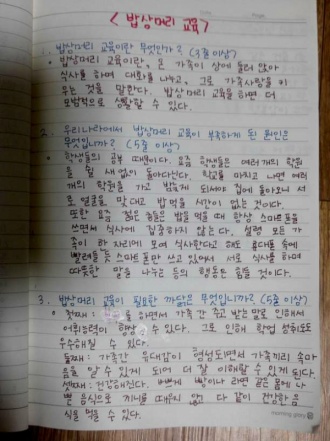 < 밥상머리 교육 >
1. 밥상머리 교육이란 무엇인가? (3줄 이상)
• 밥상머리 교육이란, 온 가족이 상에 둘러 앉아
식사를 하며 대화를 나누고, 그로 가족사랑을 키
우는 것을 말한다. 밥상머리 교육을 하면 더
모범적으로 생활할 수 있다.
2. 우리나라에서 밥상머리 교육이 부족하게 된 원인은
무엇입니까? (5줄 이상)
• 학생들의 공부 때문이다. 요즘 학생들은 여러개의 학원
을 쉴 새 없이 돌아다닌다. 학교를 마치고 나면 여러
개의 학원을 가고 밤늦게 되서야 집에 돌아오니 서
로 얼굴을 맞대고 밥 먹을 시간이 없는 것이다.
또한 요즘 젊은 층들은 밥을 먹을 때 항상 스마트폰을
하면서 식사에 집중하지 않는다. 설령 모든 가
족이 한 자리에 모여 식사한다고 해도
빨려들 듯 스마트폰만 하고 있어서 서로 식사를 하며
따뜻한 말을 나누는 등의 행동은 힘들 것이다.
3. 밥상머리 교육이 필요한 까닭은 무엇입니까? (5줄 이상)
• 첫째 : 를 하면서 가족간 주고 받는 말로 인해서
어휘능력이 향상될 수 있다. 그로 인해 학업 성취도도
우수해질 수 있다.
둘째 : 가족간 유대감이 형성되면서 가족끼리 속마
음을 알 수 있게 되어 더 잘 이해할 수 있게 된다.
셋째 : 건강해진다. 바쁘게 빵이나 라면 같은 몸에 나
쁜 음식으로 끼니를 때우지 않고 다 같이 건강한 음
식을 먹을 수 있다.
morning glory